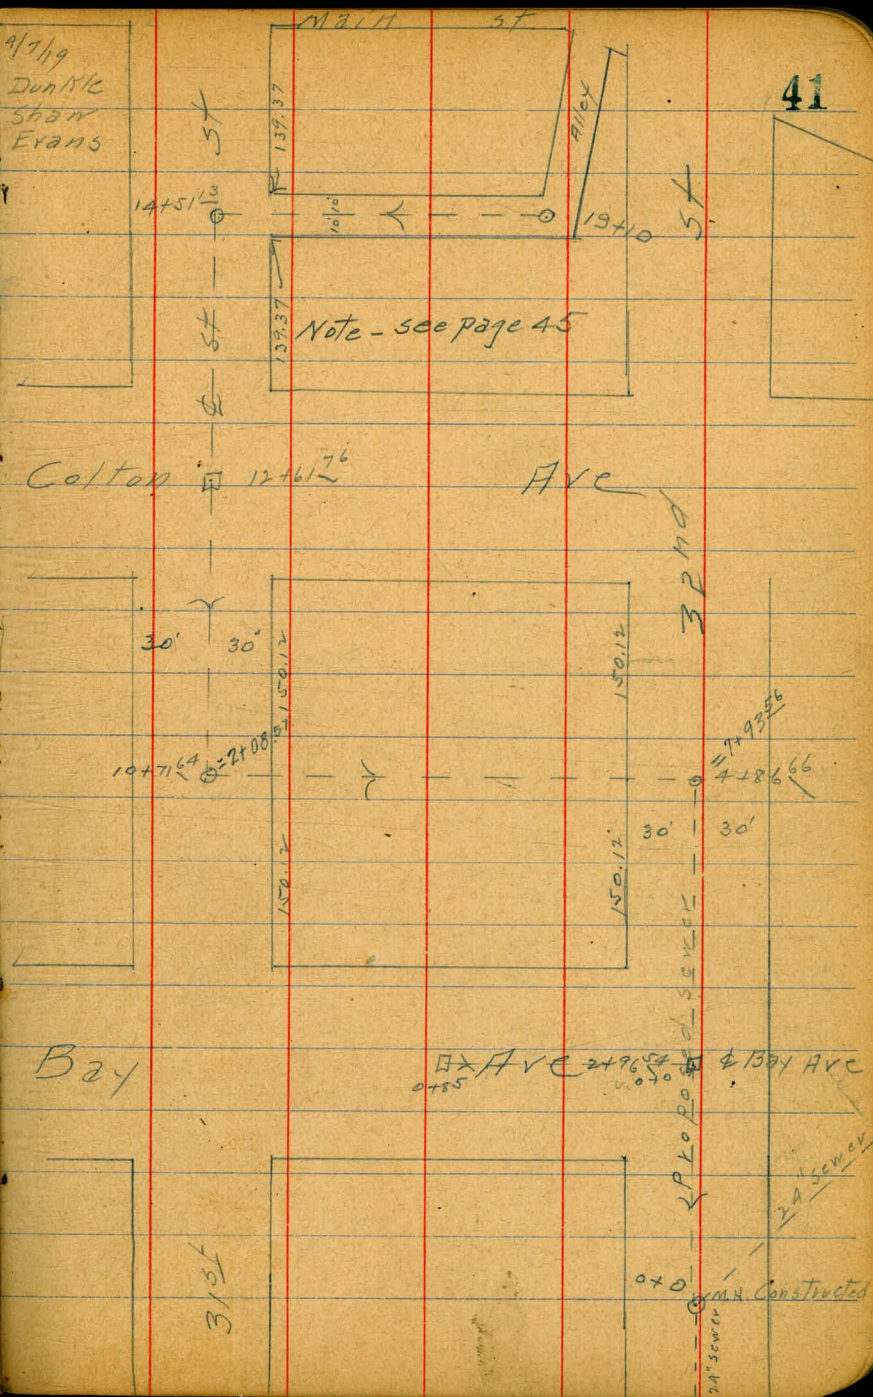 Main st
9/7/19
Dunkle
Shaw
Evans
41
St
139.37
Alley
14+51.13
10' 10'
19+10
St
139.37
Note - see page 45
₵ St
Colton 12+61.76 Ave
32nd
30' 30'
150.12
150.12
10+71.64
=7+93.56
4+86.66
30' 30'
150.12
150.12'
Proposed sewer
Bay Ave 2+96.54 ₵ Bay Ave
0+85
0+0
24" sewer
31st
0+0
M.H. Constructed
24" sewer